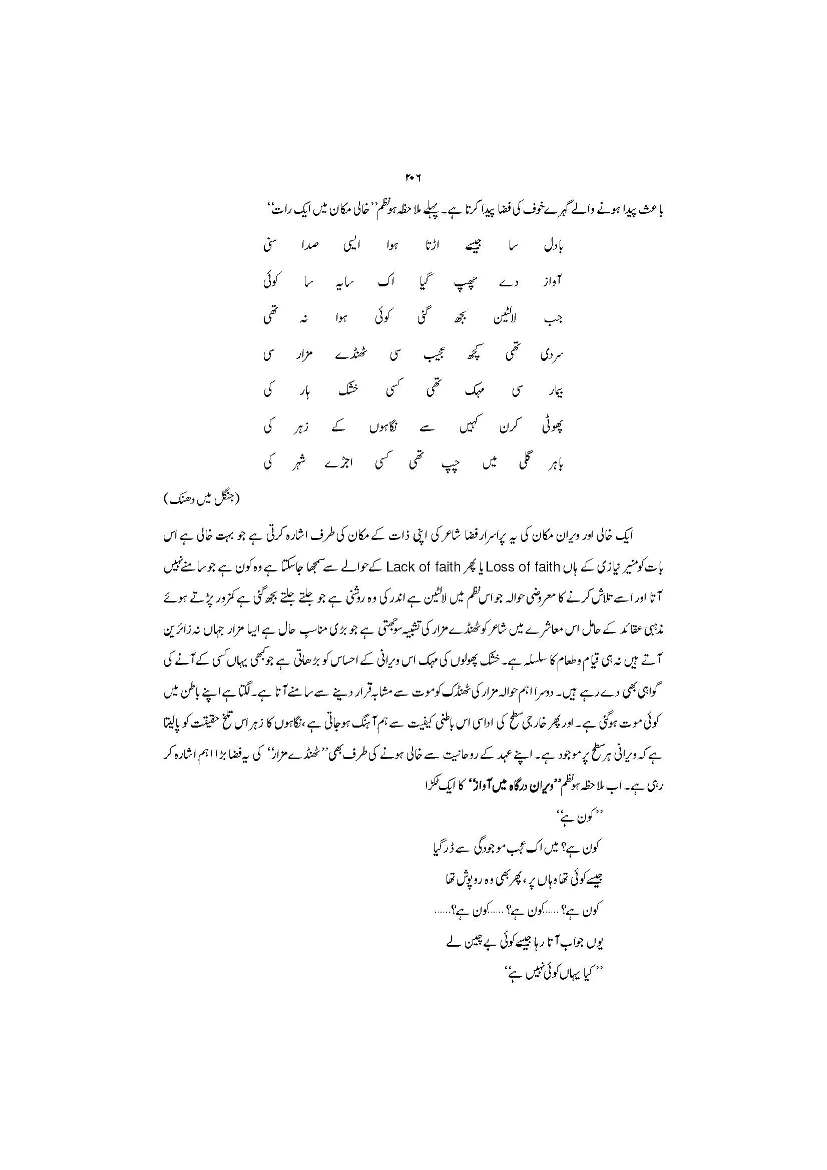 ۲۰۶
باعث پیدا ہونے والے گہرے خوف کی فضا پیدا کرتا ہے۔ پہلے ملاحظہ ہو نظم ’’خالی مکان میں ایک رات‘‘
بادل سا جیسے اڑتا ہوا ایسی صدا سنی
آواز دے چھپ گیا اک سایہ سا کوئی
جب لالٹین بجھ گئی کوئی ہوا نہ تھی
سردی تھی کچھ عجیب سی ٹھنڈے مزار سی
بیمار سی مہک تھی کسی خشک ہار کی
پھوٹی کرن کہیں سے نگاہوں کے زہر کی
باہر گلی میں چپ تھی کسی اجڑے شہر کی
(جنگل میں دھنک)
ایک خالی اور ویران مکان کی یہ پراسرار فضا شاعر کی اپنی ذات کے مکان کی طرف اشارہ کرتی ہے جو بہت خالی ہے اس
بات کو منیر نیازی کے ہاں Loss of faith یا پھر Lack of faith کے حوالے سے سمجھا جاسکتا ہے وہ کون ہے جو سامنے نہیں
آتا اور اسے تلاش کرنے کا معروضی حوالہ جو اس نظم میں لالٹین ہے اندر کی وہ روشنی ہے جو جلتے جلتے بجھ گئی ہے کمزور پڑتے ہوئے
مذہبی عقائد کے حامل اس معاشرے میں شاعر کو ٹھنڈے مزار کی تشبیہ سوجھتی ہے جو بڑی مناسب حال ہے ایسا مزار جہاں نہ زائرین
آتے ہیں نہ ہی قیام و طعام کا سلسلہ ہے۔ خشک پھولوں کی مہک اس ویرانی کے احساس کو بڑھاتی ہے جو کبھی یہاں کسی کے آنے کی
گواہی بھی دے رہے ہیں۔ دوسرا اہم حوالہ مزار کی ٹھنڈک کو موت سے مشابہ قرار دینے سے سامنے آتا ہے۔ لگتا ہے اپنے باطن میں
کوئی موت ہوگئی ہے۔ اور پھر خارجی سطح کی اداسی اس باطنی کیفیت سے ہم آہنگ ہوجاتی ہے، نگاہوں کا زہر اس تلخ حقیقت کو پالیتا
ہے کہ ویرانی ہر سطح پر موجود ہے۔ اپنے عہد کے روحانیت سے خالی ہونے کی طرف بھی ’’ٹھنڈے مزار‘‘ کی یہ فضا بڑا اہم اشارہ کر
رہی ہے۔ اب ملاحظہ ہو نظم ’’ویران درگاہ میں آواز‘‘ کا ایک ٹکڑا
’’کون ہے‘‘
کون ہے؟ میں اک عجب موجودگی سے ڈر گیا
جیسے کوئی تھا وہاں پر، پھر بھی وہ روپوش تھا
کون ہے؟ ......کون ہے؟ ......کون ہے؟......
یوں جواب آتا رہا جیسے کوئی بے چین لے
’’کیا یہاں کوئی نہیں ہے‘‘